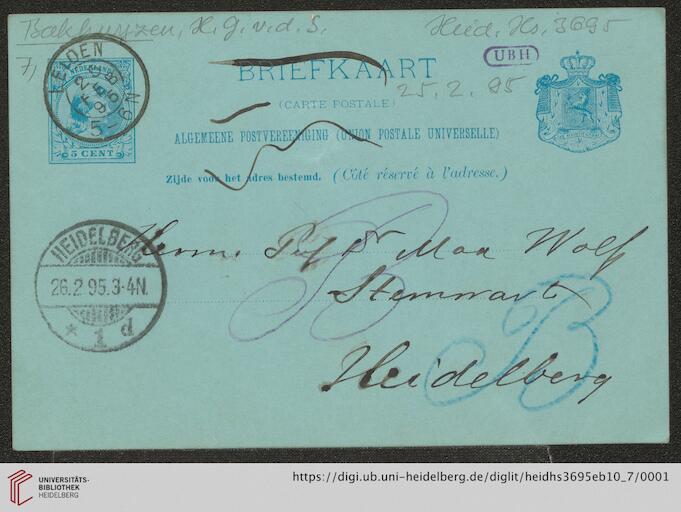 Bakhuyzen, H. G. v. d. S.
Heid. Hs. 3695
7,
UBH
25. 2. 95
NEDERLAND
HELDEN
5 CENT
BRIEFKAART
(CARTE POSTALE)
ALGEMEENE POSTVEREENIGING (UNION POSTALE UNIVERSELLE)
Zijde voor het adres bestemd. (Côté réservé à l'adresse.)
HEIDELBERG
26.2.95.3-4N.
* 1 d
Herrn Prof Dr Max Wolf
Sternwarte
Heidelberg
B
B
UNIVERSITÄTS-
BIBLIOTHEK
HEIDELBERG
https://digi.ub.uni-heidelberg.de/diglit/heidhs3695eb10_7/0001